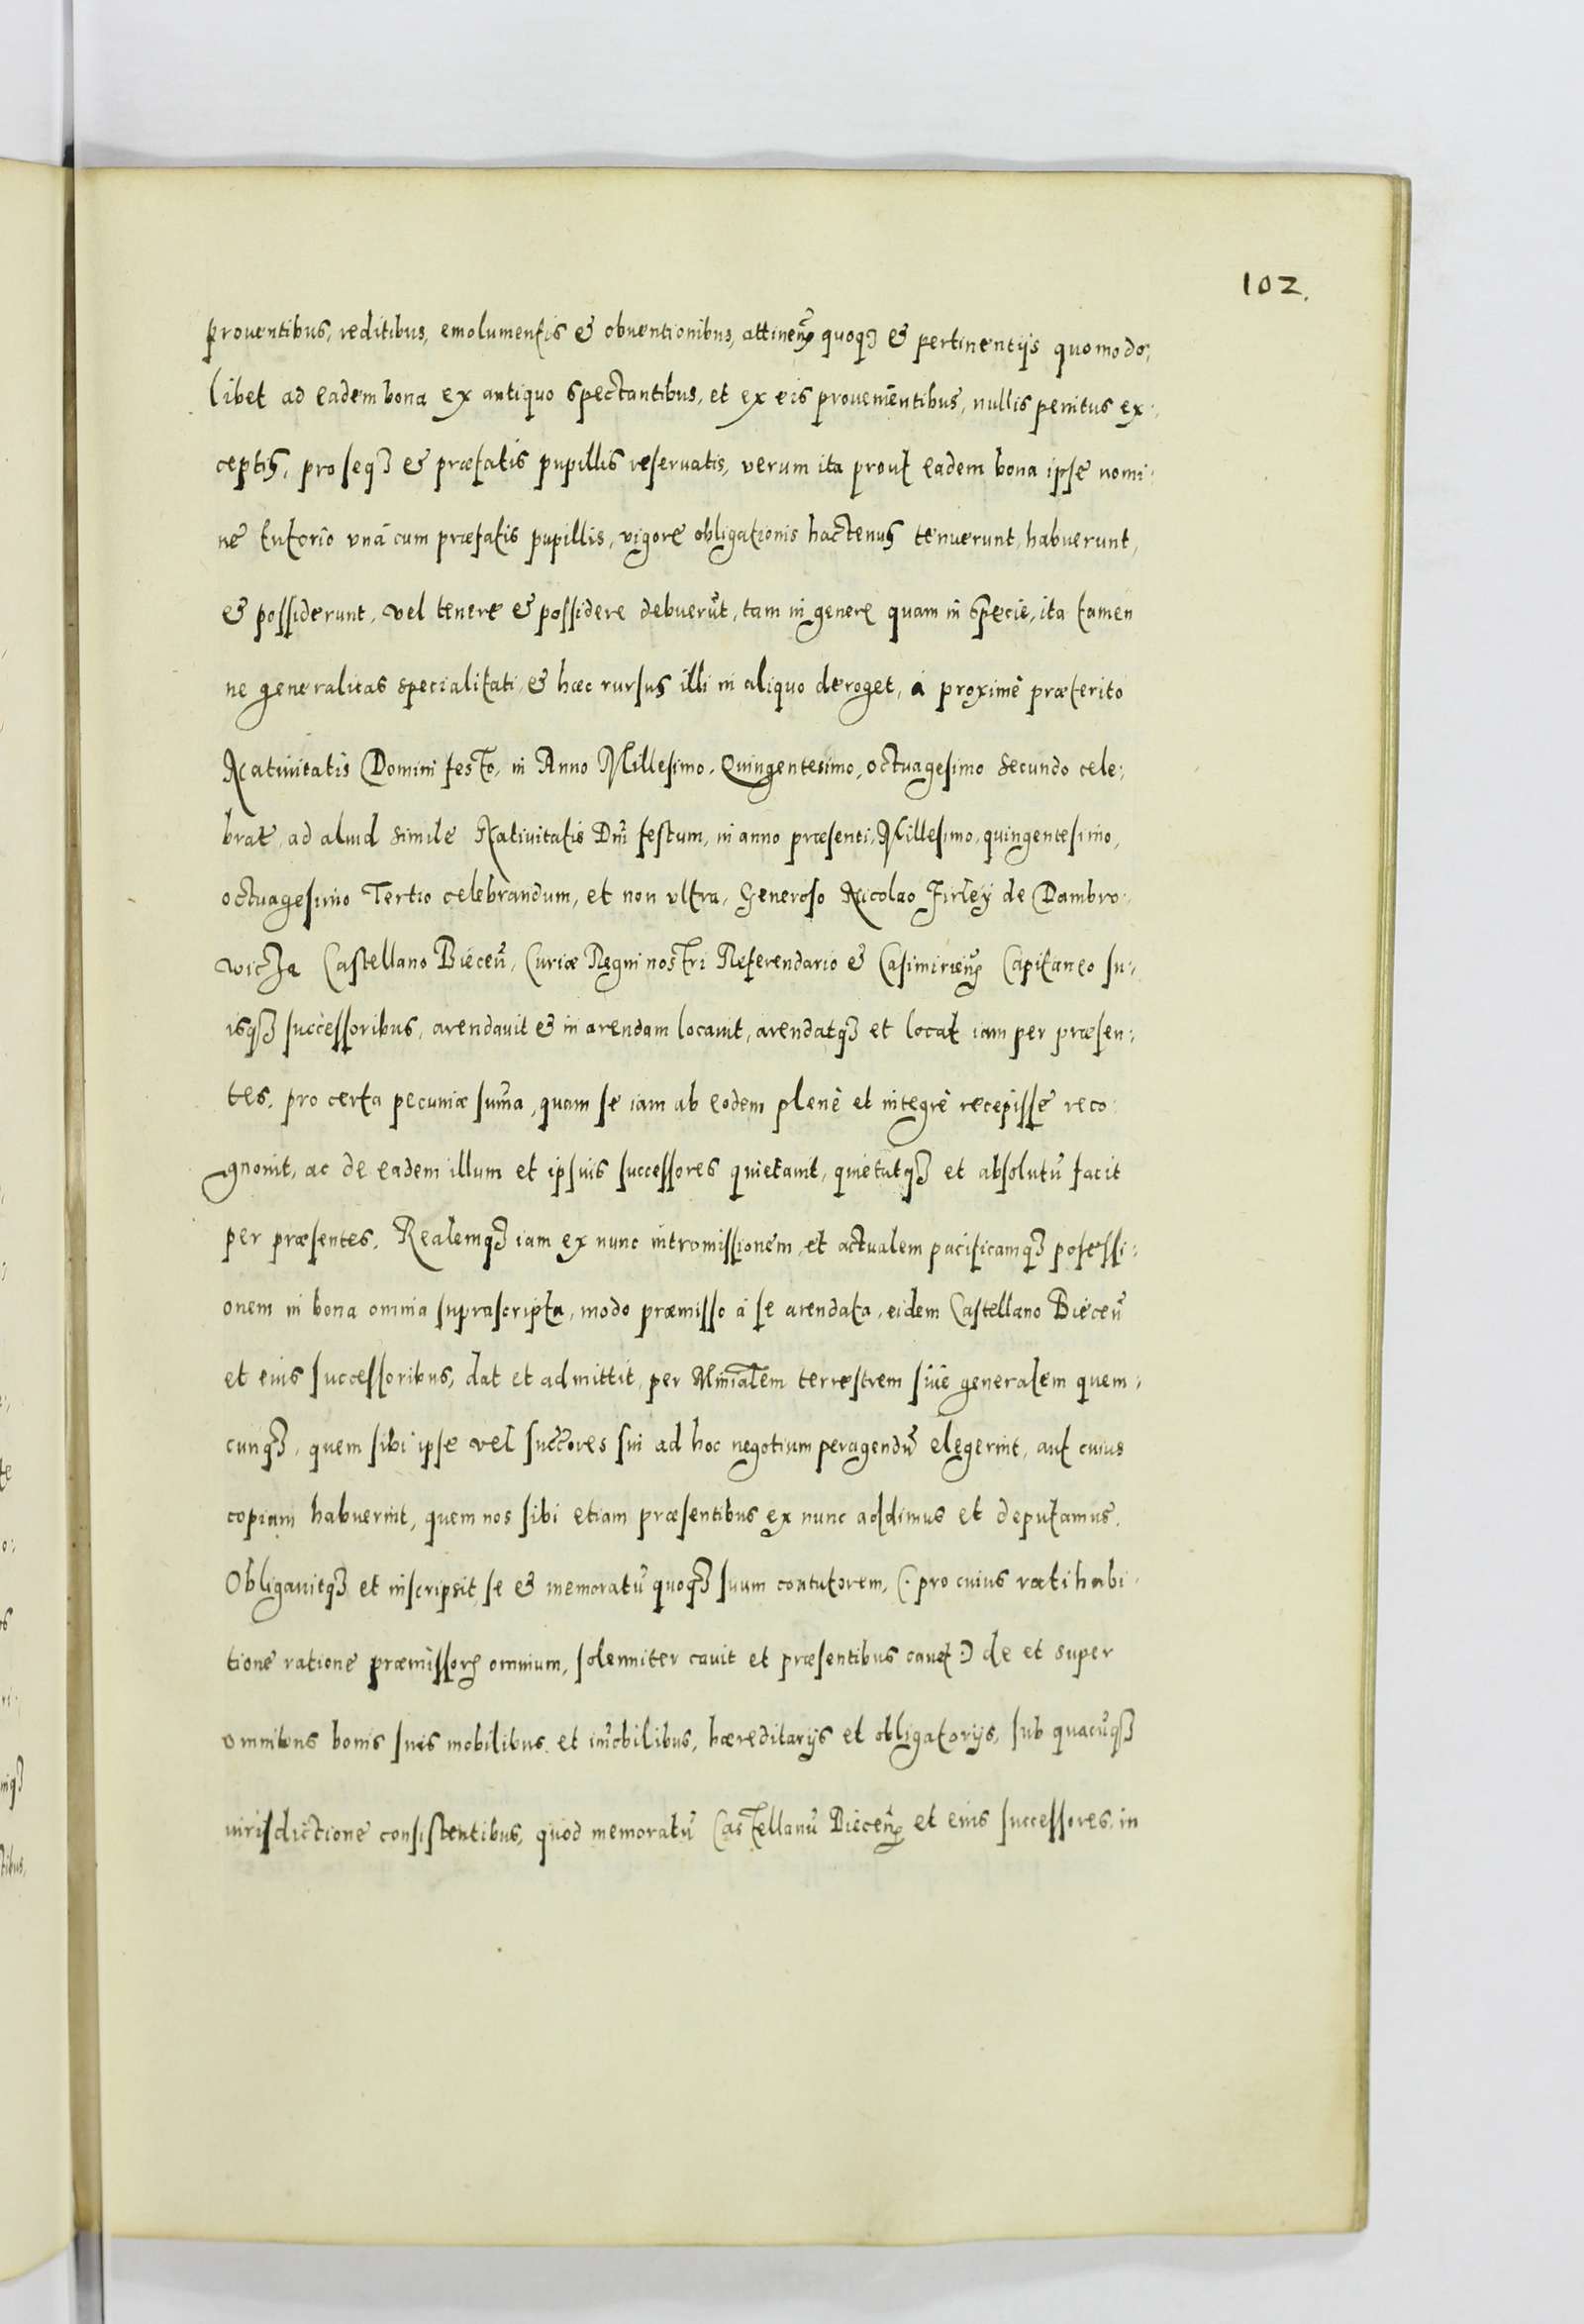 102.
proventibus, reditibus, emolumentis & obventionibus, attinen̄ quoqȝ & pertinentijs quomodo:
libet ad eadem bona ex antiquo spectantibus, et ex eis provenientibus, nullis penitus ex:
ceptis, pro seqȝ & præfatis pupillis reservatis, verum ita prout eadem bona ipse nomi:
ne tutorio vnà cum præfatis pupillis, vigore obligationis hactenus tenuerunt, habuerunt,
& possiderunt, vel tenere & possidere debuerūt, tam in genere quam in specie, ita tamen
ne generalitas specialitati, & hæc rursus illi in aliquo deroget, à proximè præterito
Nativitatis Domini festo, in Anno Millesimo, Quingentesimo, octuagesimo Secundo cele:
brat, ad aliud simile Nativitatis Dnī festum, in anno præsenti, Millesimo, quingentesimo,
octuagesimo Tertio celebrandum, et non vltra, Generoso Nicolao Firley de Dambro:
wicza Castellano Biecen̄, Curiæ Regni nostri Referendario & Casimirien̄ Capitaneo su:
isqȝ successoribus, arendavit & in arendam locavit, arendatqȝ et locat iam per præsen:
tes, pro certa pecuniæ sum̄a, quam se iam ab eodem plenè et integrè recepisse reco:
gnovit, ac de eadem illum et ipsius successores quietavit, quietatqȝ et absolutū facit
per præsentes. Realemqȝ iam ex nunc intromissionem, et actualem pacificamqȝ possessi:
onem in bona omnia suprascripta, modo præmisso à se arendata, eidem Castellano Biecen̄
et eius successoribus, dat et admittit, per Mīnialem terrestrem siue generalem quem:
cunqȝ, quem sibi ipse vel succ̄ores sui ad hoc negotium peragendū elegerint, aut cuius
copiam habuerint, quem nos sibi etiam præsentibus ex nunc addimus et deputamus.
Obligavitqȝ et inscripsit se & memoratū quoqȝ suum contutorem, (: pro cuius ratihabi:
tione ratione præmissorū omnium, solenniter cavit et præsentibus cavet :) de et super
omnibus bonis suis mobilibus et im̄obilibus, hæreditarijs et obligatorijs, sub quacūqȝ
iurisdictione consistentibus, quod memoratū Castellanū Biecen̄ et eius successores, in